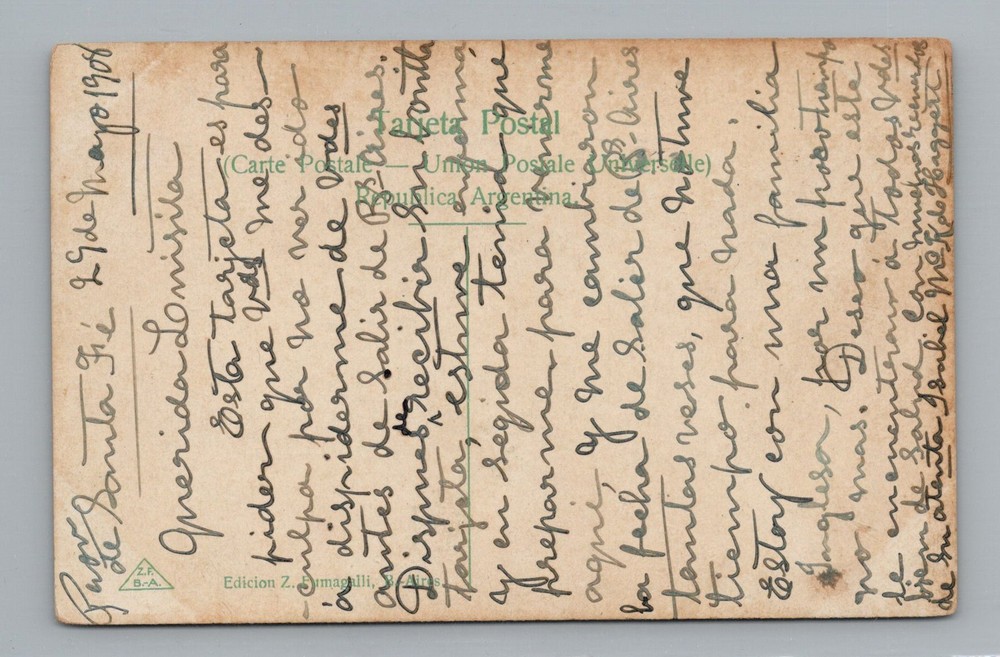 Tarjeta Postal
(Carte Postale — Union Postale Universelle)
Republica Argentina.
Z.F.
B.-A.
Edicion Z. Fumagalli, B.-Aires.
Prov 29 de Mayo 1906
de Santa Fié
Querida Luisila
Esta tarjeta es para
pider que Vds me des-
culpa pda no ver do
á dispiderme de Vdes
antes de Salir de Bs-Aires.
Dispues de recibir Su bonita
tarjeta, estuve enferma,
y en seguda tenia que
prepararme para venirme
aqui y me cambiaron
la fecha de Salir de B-Aires
tantas veses, que no tuve
tiempo para nada.
Estoy con una familia
Inglesa, por un poco tiempo
no mas. Deseo que este
se encentrará á todos Vdes
bien de Salud, Con muchos recuerdos
de Su atenta Isabel